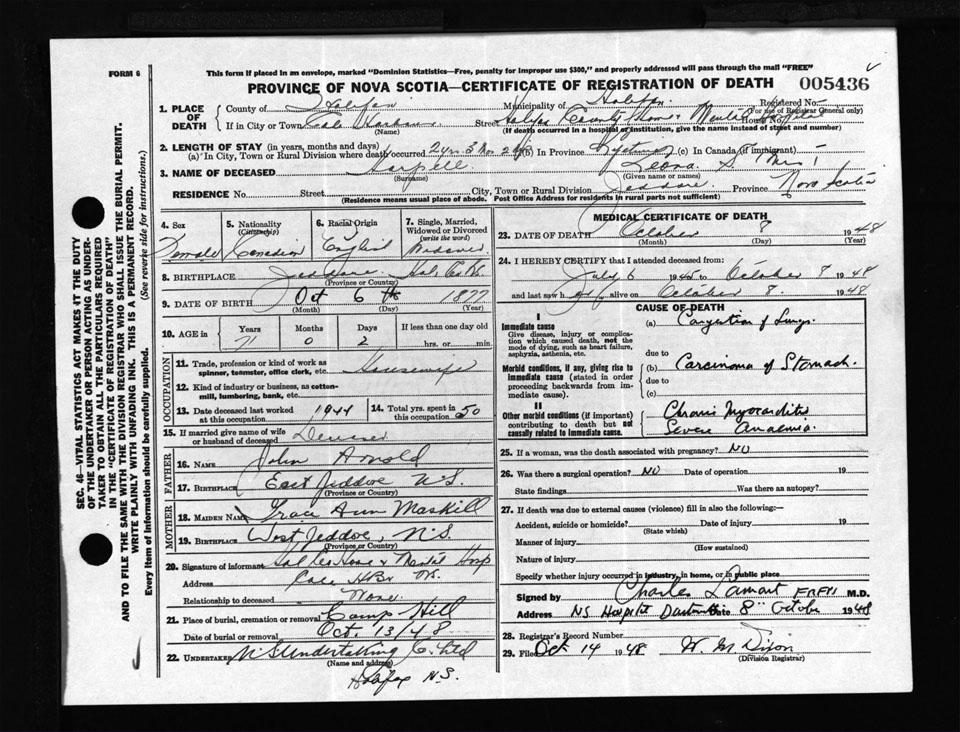 FORM 6
This form if placed in an envelope, marked "Dominion Statistics—Free, penalty for improper use $300," and properly addressed will pass through the mail "FREE"
PROVINCE OF NOVA SCOTIA—CERTIFICATE OF REGISTRATION OF DEATH
005436
1. PLACE OF DEATH
County of Halifax
Municipality of Halifax
Registered No.
(For use of Registrar General only)
If in City or Town Cole Harbour
(Name)
Street Halifax County Home & Mental Hospital House No.
(If death occurred in a hospital or institution, give the name instead of street and number)
2. LENGTH OF STAY (in years, months and days)
(a) In City, Town or Rural Division where death occurred 2 yrs 3 Mos (b) In Province Lifetime (c) In Canada (if immigrant)
3. NAME OF DECEASED Harpell Leona S Mrs
(Surname) (Given name or names)
RESIDENCE No. Street City, Town or Rural Division Jeddore Province Nova Scotia
(Residence means usual place of abode. Post Office Address for residents in rural parts not sufficient)
4. Sex
Female
5. Nationality (Citizenship)
Canadian
6. Racial Origin
English
7. Single, Married, Widowed or Divorced (write the word)
Widowed
8. BIRTHPLACE Jeddore Hal. Co. NS.
(Province or Country)
9. DATE OF BIRTH Oct 6th 1877
(Month) (Day) (Year)
10. AGE in Years Months Days If less than one day old
71 0 2 hrs. or min.
OCCUPATION
11. Trade, profession or kind of work as spinner, teamster, office clerk, etc. Housewife
12. Kind of industry or business, as cotton-mill, lumbering, bank, etc.
13. Date deceased last worked at this occupation 1944
14. Total yrs. spent in this occupation 50
15. If married give name of wife or husband of deceased
FATHER
16. NAME John Arnold
17. BIRTHPLACE East Jeddore N.S.
(Province or Country)
MOTHER
18. MAIDEN NAME Grace Ann Maskill
19. BIRTHPLACE West Jeddore, N.S.
(Province or Country)
20. Signature of informant Hal Co Home & Mental Hosp
Address Cole HBr NS.
Relationship to deceased None
21. Place of burial, cremation or removal Camp Hill
Date of burial or removal Oct. 13/48
22. UNDERTAKER N.S Undertaking Co. Ltd
(Name and address)
Halifax N.S.
MEDICAL CERTIFICATE OF DEATH
23. DATE OF DEATH October 8 1948
(Month) (Day) (Year)
24. I HEREBY CERTIFY that I attended deceased from:
July 6 1945 to October 8 1948
and last saw her alive on October 8. 1948
CAUSE OF DEATH
I
Immediate cause
Give disease, injury or complication which caused death, not the mode of dying, such as heart failure, asphyxia, asthenia, etc.
(a) Congestion of Lungs.
due to
Morbid conditions, if any, giving rise to immediate cause (stated in order proceeding backwards from immediate cause).
(b) Carcinoma of Stomach.
due to
(c)
II
Other morbid conditions (if important) contributing to death but not causally related to immediate cause.
Chronic Myocarditis
Severe Anaemia.
25. If a woman, was the death associated with pregnancy? NO
26. Was there a surgical operation? NO Date of operation 19
State findings Was there an autopsy?
27. If death was due to external causes (violence) fill in also the following:—
Accident, suicide or homicide? Date of injury 19
(State which)
Manner of injury
(How sustained)
Nature of injury
Specify whether injury occurred in industry, in home, or in public place
Signed by Charles Lamont M.D.
Address NS Hospital Dartmouth Date 8th October 1948
28. Registrar's Record Number
29. Filed Oct 14 1948 W. M Dixon
(Division Registrar)
SEC. 46—VITAL STATISTICS ACT MAKES IT THE DUTY
OF THE UNDERTAKER OR PERSON ACTING AS UNDER-
TAKER TO OBTAIN ALL THE PARTICULARS REQUIRED
IN THE "CERTIFICATE OF REGISTRATION OF DEATH"
AND TO FILE THE SAME WITH THE DIVISION REGISTRAR WHO SHALL ISSUE THE BURIAL PERMIT.
WRITE PLAINLY WITH UNFADING INK. THIS IS A PERMANENT RECORD.
Every item of information should be carefully supplied. (See reverse side for instructions.)